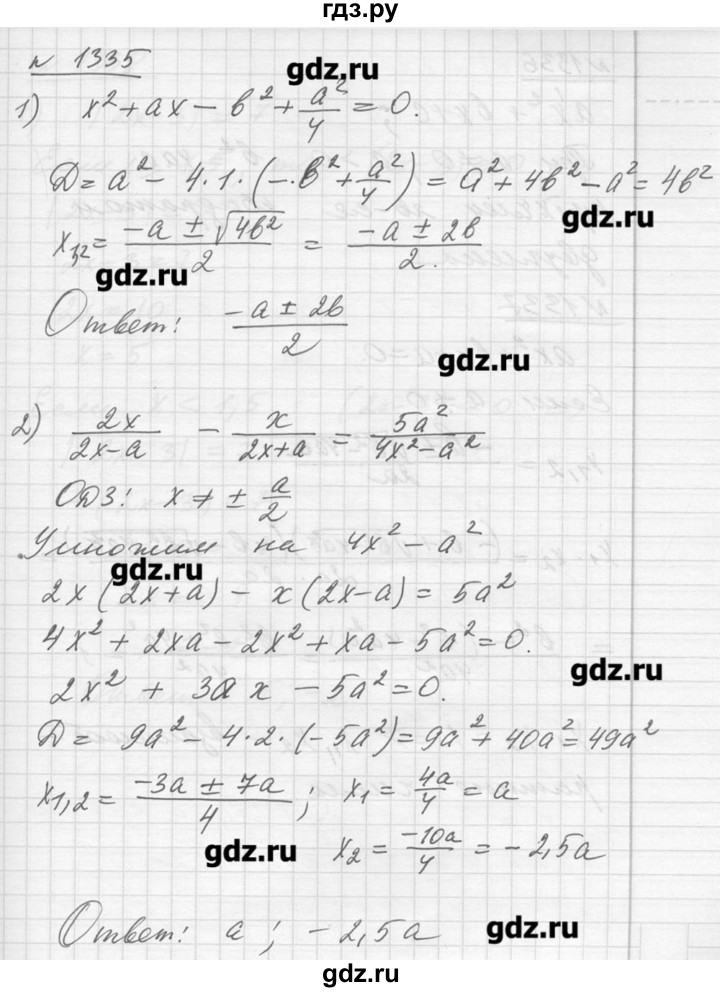 гдз.ру
№ 1335
gdz.ru
1) x² + ax − b² + a²/4 = 0.
D = a² − 4·1·(−b² + a²/4) = a² + 4b² − a² = 4b²
gdz.ru
x₁,₂ = (−a ± √4b²)/2 = (−a ± 2b)/2.
gdz.ru
Ответ: (−a ± 2b)/2
gdz.ru
2) 2x/(2x−a) − x/(2x+a) = 5a²/(4x²−a²)
ОДЗ: x ≠ ± a/2
Умножим на 4x² − a²
gdz.ru
2x(2x+a) − x(2x−a) = 5a²
4x² + 2xa − 2x² + xa − 5a² = 0.
gdz.ru
2x² + 3ax − 5a² = 0.
D = 9a² − 4·2·(−5a²) = 9a² + 40a² = 49a²
x₁,₂ = (−3a ± 7a)/4; x₁ = 4a/4 = a
gdz.ru
x₂ = −10a/4 = −2,5a
Ответ: a; −2,5a
gdz.ru
gdz.ru